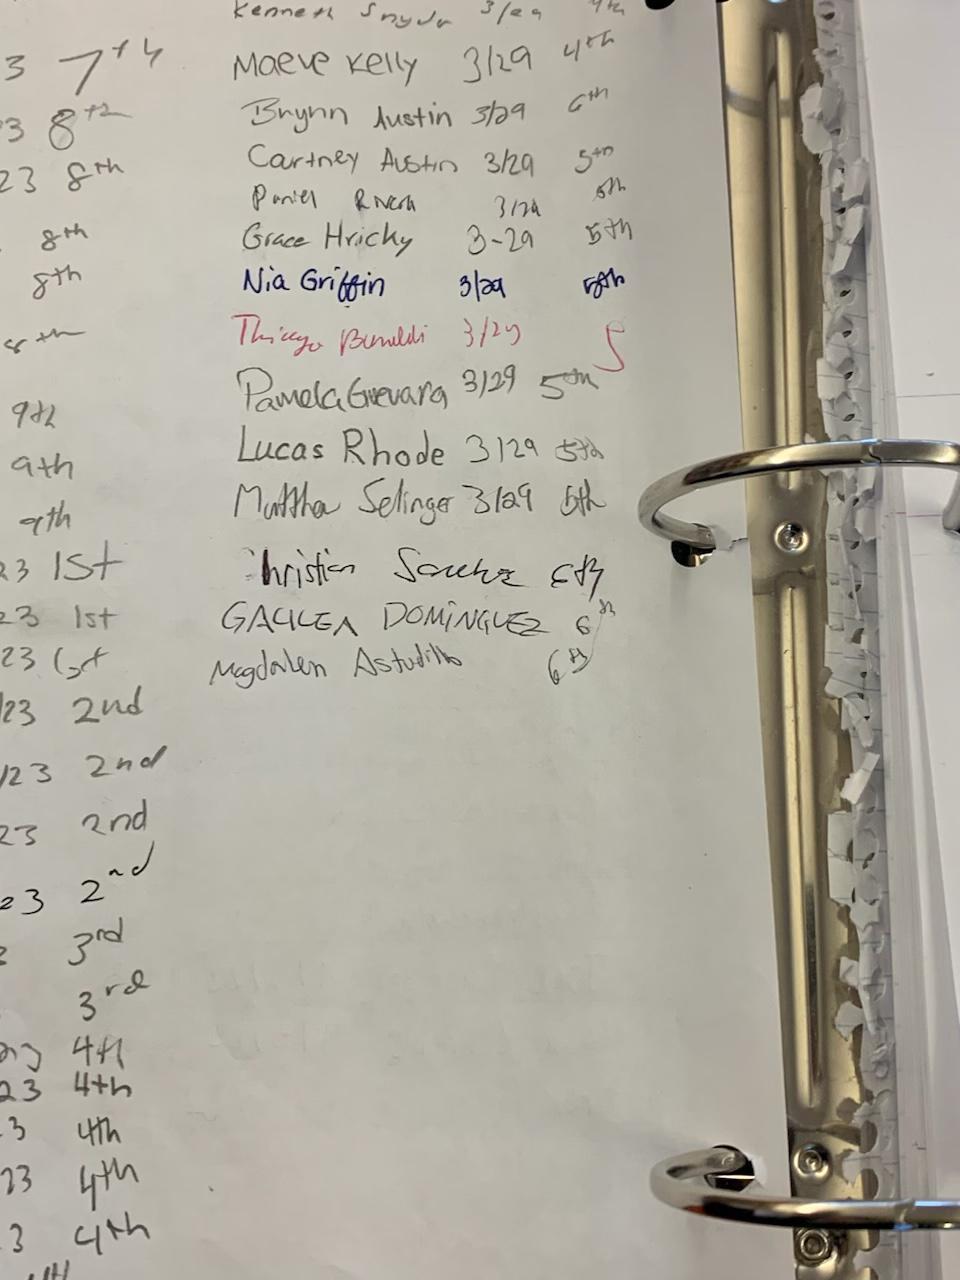 Kenneth Snyder 3/29 4th
Maeve Kelly 3/29 4th
Brynn Austin 3/29 6th
Cartney Austin 3/29 5th
Daniel Rivera 3/29 5th
Grace Hricky 3-29 5th
Nia Griffin 3/29 5th
Thiago 3/29 5
Pamela Guevara 3/29 5th
Lucas Rhode 3/29 5th
Matthew Selinger 3/29 5th
Christian Sanchez 6th
GALILEA DOMINGUEZ 6th
Magdalen Astudillo 6th
3 7th
3 8th
23 8th
8th
8th
8th
9th
9th
9th
23 1st
23 1st
23 1st
/23 2nd
/23 2nd
23 2nd
23 2nd
3rd
3rd
23 4th
23 4th
3 4th
23 4th
3 4th